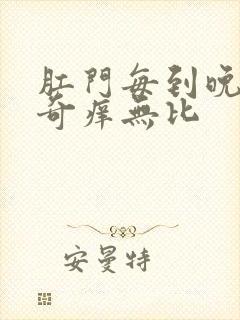 肛門每到晚
奇痒無比
安曼特